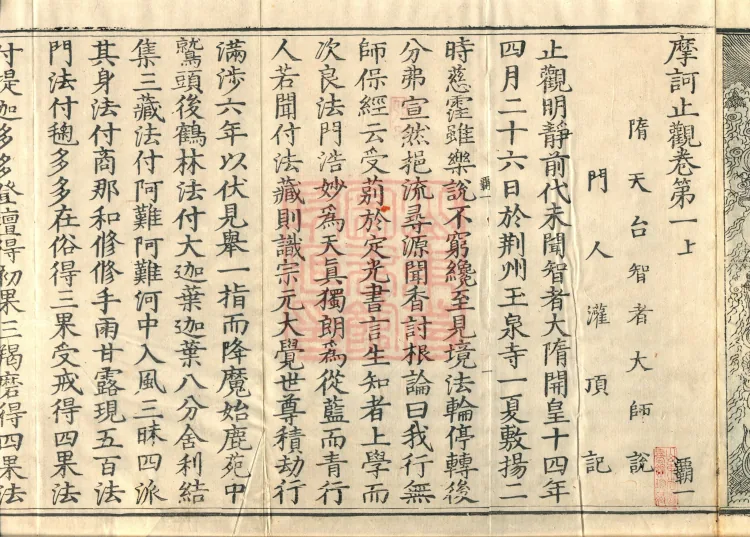 摩訶止觀卷第一上
隋天台智者大師說
霸一
門人灌頂記
止觀明靜前代未聞智者大隋開皇十四年
四月二十六日於荆州王泉寺一夏敷揚二
霸一
時慈霔雖樂說不窮纔至見境法輪停轉後
分弗宣然挹流尋源聞香討根論曰我行無
師保經云受莂於定光書言生知者上學而
次良法門浩妙為天真獨朗為從藍而青行
人若聞付法藏則識宗元大覺世尊積劫行
滿涉六年以伏見舉一指而降魔始鹿苑中
鷲頭後鶴林法付大迦葉迦葉八分舍利結
集三藏法付阿難阿難河中入風三昧四派
其身法付商那和修修手雨甘露現五百法
門法付毱多多在俗得三果受戒得四果法
付提迦多多登壇得初果三羯磨得四果法